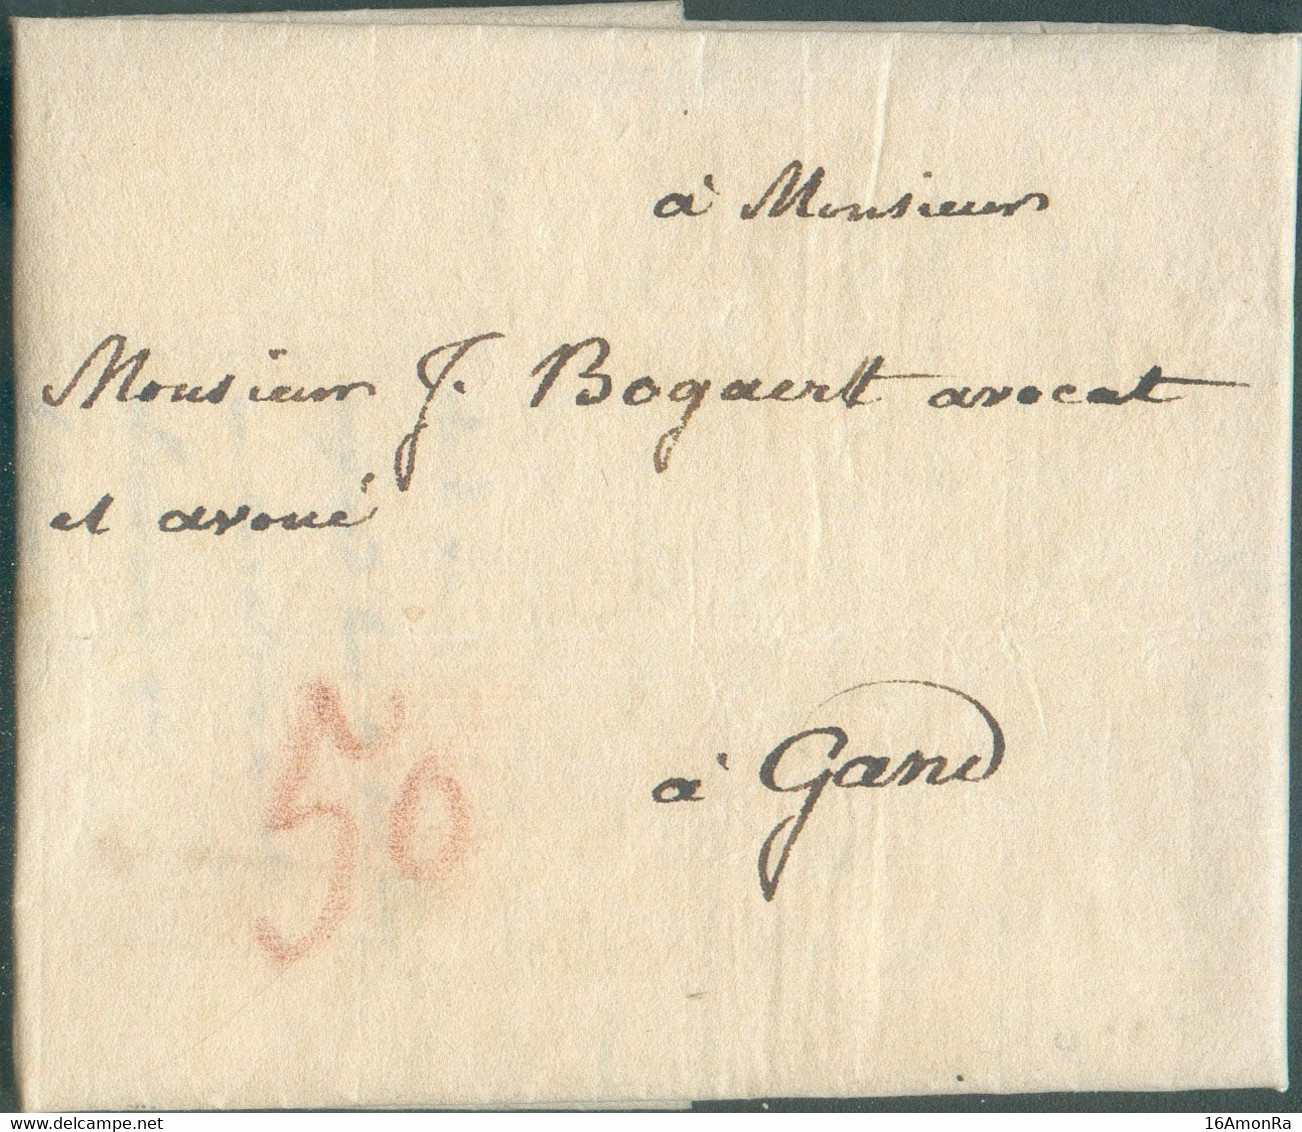 à Monsieur
Monsieur J. Bogaert avocat
et avoué
50
à Gand
delcampe.net
16AmonRa